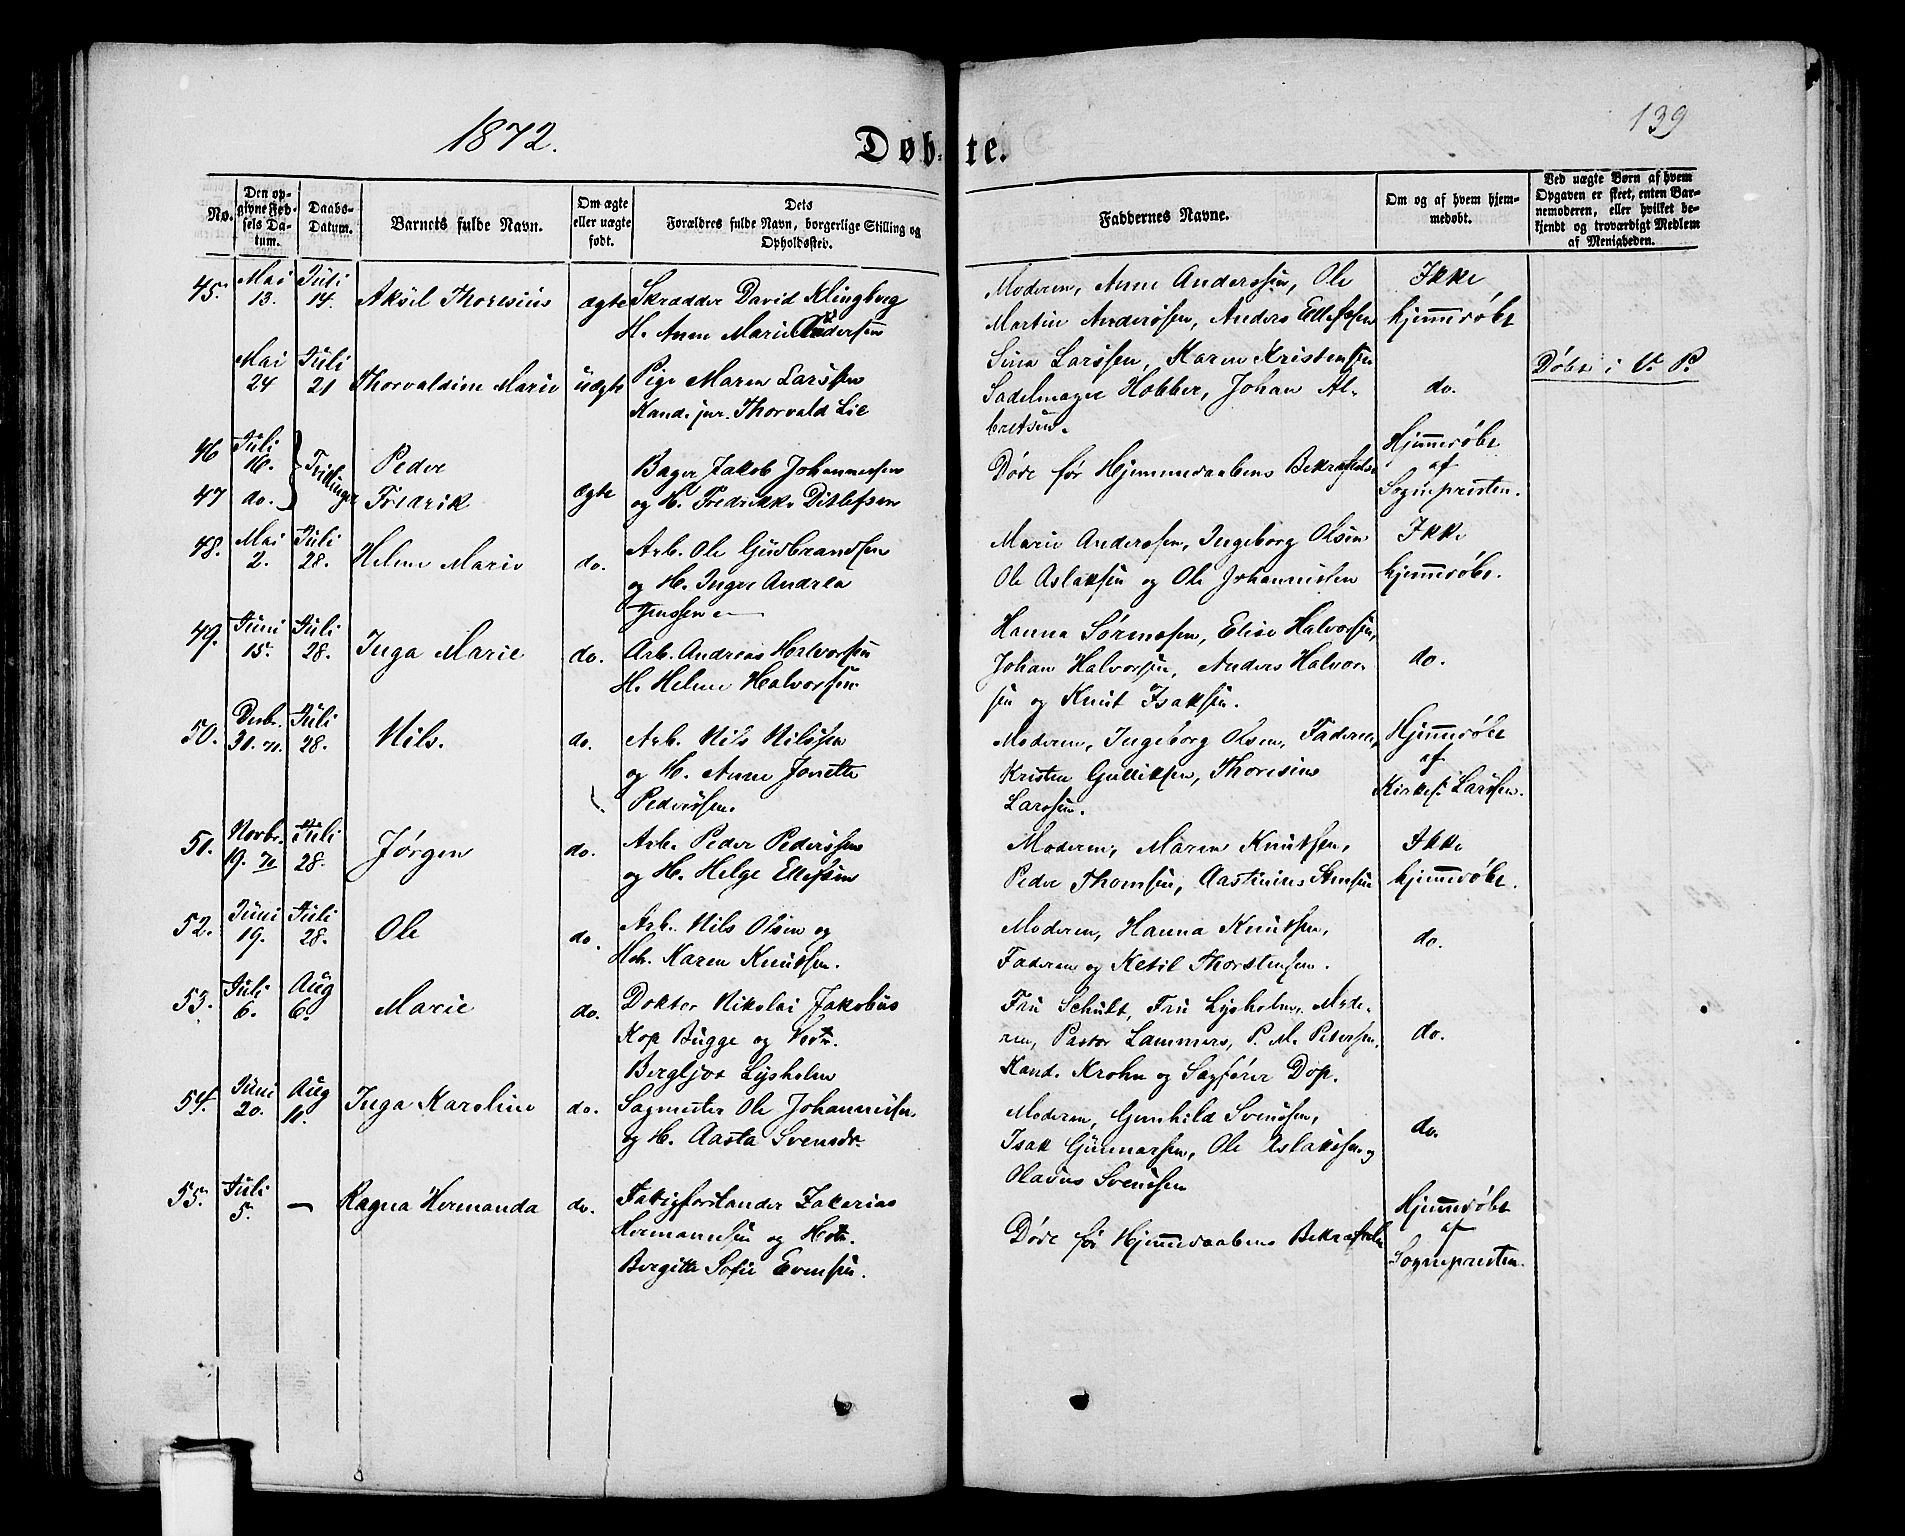 1872.
Døb- te.
139
No.
Den opgivne Fødsels Datum.
Daabs-Datum.
Barnets fulde Navn.
Om ægte eller uægte født.
Dets Forældres fulde Navn, borgerlige Stilling og Opholdssted.
Faddernes Navne.
Om og af hvem hjemmedøbt.
Ved uægte Børn af hvem Opgaven er skeet, enten Barnemoderen, eller hvilket bekjendt og troværdigt Medlem af Menigheden.
45. Mai 13. Juli 14. Aksel Thoresius ægte Skrædder David Klingberg
H. Anne Marie Andersen
Moderen, Anne Anderssen, Ole
Martin Anderssen, Anders Ellefsen
Ikke
hjemmedøbt
Mai 24 Juli 21 Thorvaldine Marie uægte Pige Maren Larssen
Kand. jur. Thorvald Lie
Sina Larssen, Maren Kristensen
Sadelmager Hobber, Johan Al-
bretsen.
do.
Døbt i V. P.
46 Juli 16. Tvillinger Peder
47 do. Fredrik ægte
Bager Jakob Johannessen
og H. Fredrikke Ditlefsen
Døde før Hjemmedaabens Bekræftelse
Hjemmedøbt
af
Sognepresten.
48. Mai 2. Juli 28. Helene Marie do. Arb. Ole Gudbrandsen
og H. Inger Andrea
Jenssen
Marie Anderssen, Ingeborg Olsen
Ole Aslaksen og Ole Johannessen
Ikke
hjemmedøbt.
49. Juni 15. Juli 28. Inga Marie do. Arb. Andreas Halvorsen
H. Helene Halvorsen
Hanna Sørensen, Elise Halvorsen,
Johan Halvorsen, Anders Halvor-
sen og Knut Isaksen.
do.
50. Decbr. 30. 71. Juli 28. Nils. do. Arb. Nils Nilssen
og H. Anne Jonette
Pederssen.
Moderen, Ingeborg Olsen, Faderen,
Kristen Gulliksen, Thoresius
Larssen.
Hjemmedøbt
af
Kirkes. Larssen.
51. Novbr. 19. 71 Juli 28. Jørgen do. Arb. Peder Pederssen
og H. Helge Ellefsen
Moderen, Maren Knutsen,
Peder Thomsen, Aastinius Stensen
Ikke
hjemmedøbt.
52. Juni 19. Juli 28. Ole do. Arb. Nils Olsen og
Hstr. Karen Knutsen.
Moderen, Hanna Knutsen,
Faderen og Ketil Thorstensen.
do.
53. Juli 6. Aug 6. Marie do. Doktor Nikolai Jakobus
Kop Bugge og Hstr.
Bergljot Lysholm
Fru Schult, Fru Lysholm, Mode-
ren, Pastor Lammers, P. M. Petersen,
Kand. Krohn og Sagfører Dop.
do.
54. Juni 20. Aug 11. Inga Karoline do. Sagmester Ole Johannessen
og H. Aasta Svensdr.
Moderen, Gunhild Svenssen,
Isak Gunnarsen, Ole Aslaksen og
Olavus Svenssen
do.
55. Juli 5. — Ragna Hermanda do. Fattigforstander Zakarias
Hermanssen og Hstr.
Bergitte Sofie Evensen.
Døde før Hjemmedaabens Bekræftelse
Hjemmedøbt
af
Sognepresten.